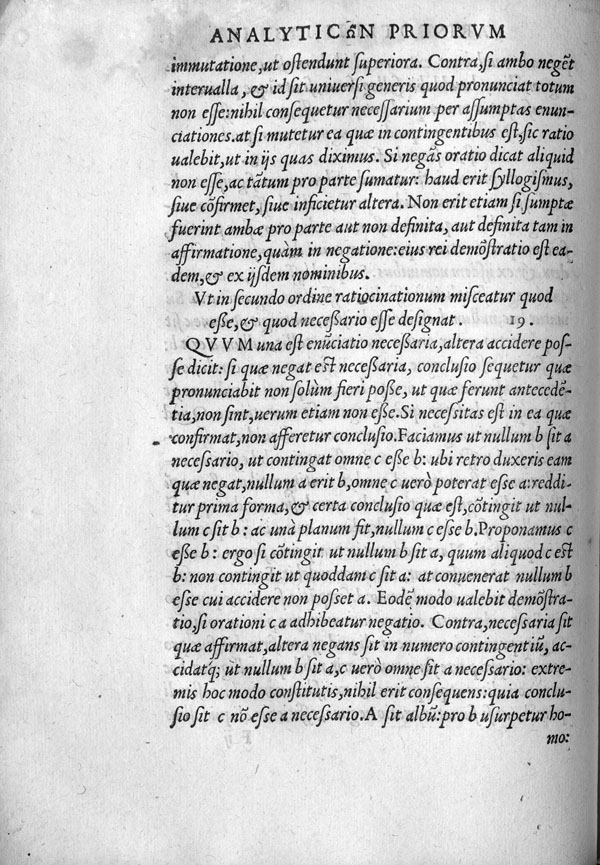 ANALYTICῶN PRIORVM
immutatione,ut ostendunt superiora. Contra,si ambo negēt
interualla, & id sit uniuersi generis quod pronunciat totum
non esse:nihil consequetur necessarium per assumptas enun-
ciationes.at si mutetur ea quæ in contingentibus est,sic ratio
ualebit,ut in ijs quas diximus. Si negās oratio dicat aliquid
non esse,ac tātum pro parte sumatur: haud erit syllogismus,
siue cōfirmet, siue inficietur altera. Non erit etiam si sumptæ
fuerint ambæ pro parte aut non definita, aut definita tam in
affirmatione,quàm in negatione:eius rei demōstratio est ea-
dem,& ex ijsdem nominibus.
Vt in secundo ordine ratiocinationum misceatur quod
eße,& quod neceßario esse designat. 19.
QVVM una est enūciatio neceßaria,altera accidere pos-
se dicit: si quæ negat est neceßaria, conclusio sequetur quæ
pronunciabit non solùm fieri poße, ut quæ ferunt antecedē-
tia,non sint,uerum etiam non eße.Si necessitas est in ea quæ
confirmat,non afferetur conclusio.Faciamus ut nullum b sit a
necessario, ut contingat omne c eße b: ubi retro duxeris eam
quæ negat,nullum a erit b,omne c uerò poterat esse a:reddi-
tur prima forma,& certa conclusio quæ est,cōtingit ut nul-
lum c sit b : ac unà planum fit,nullum c esse b.Proponamus c
eße b : ergo si cōtingit ut nullum b sit a, quum aliquod c est
b: non contingit ut quoddam c sit a: at conuenerat nullum b
esse cui accidere non posset a. Eodē modo ualebit demōstra-
tio,si orationi c a adhibeatur negatio. Contra,necessaria sit
quæ affirmat,altera negans sit in numero contingentiū, ac-
cidatq; ut nullum b sit a,c uerò omne sit a necessario: extre-
mis hoc modo constitutis,nihil erit consequens:quia conclu-
sio sit c nō esse a necessario.A sit albū:pro b usurpetur ho-
mo: